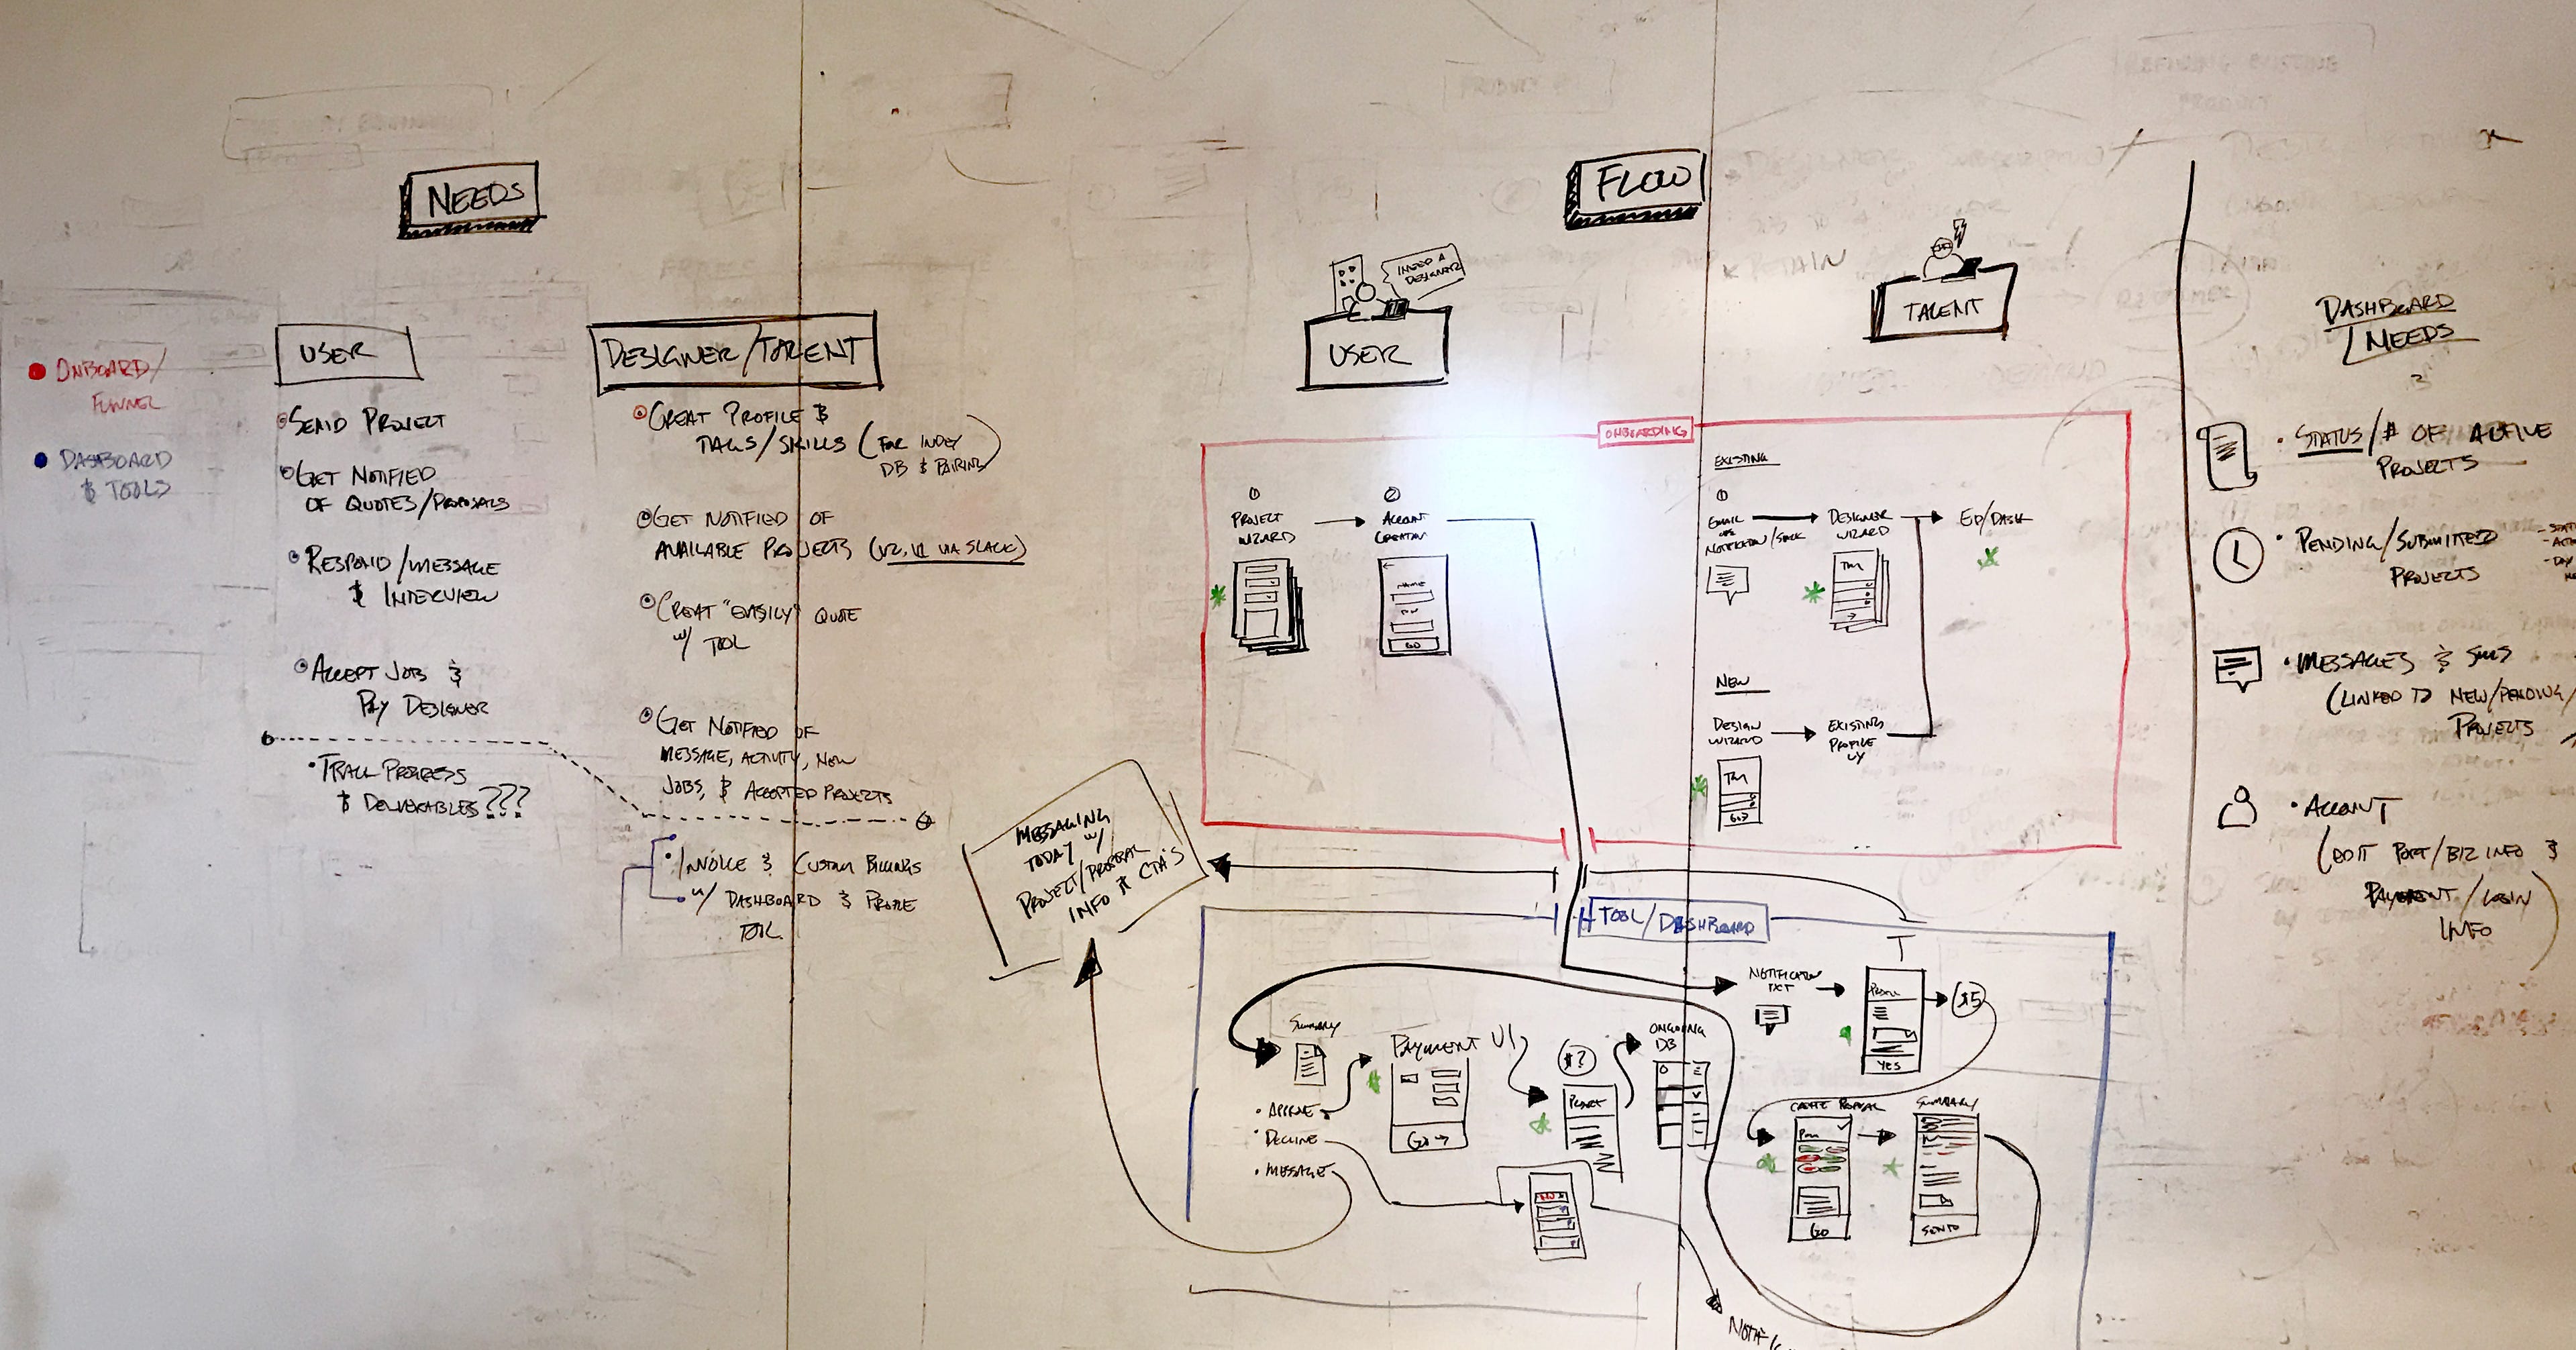 NEEDS
ONBOARD/
FUNNEL
DASHBOARD
& TOOLS
USER
SEND PROJECT
GET NOTIFIED
OF QUOTES/PROPOSALS
RESPOND/MESSAGE
& INTERVIEW
ACCEPT JOB &
PAY DESIGNER
TRACK PROGRESS
& DELIVERABLES???
DESIGNER/TALENT
CREAT PROFILE &
TAGS/SKILLS (FOR INDEX
DB & PAIRING)
GET NOTIFIED OF
AVAILABLE PROJECTS (V2, V1 VIA SLACK)
CREAT "EASILY" QUOTE
W/ TOOL
GET NOTIFIED OF
MESSAGE, ACTIVITY, NEW
JOBS, & ACCEPTED PROJECTS
INVOICE & CUSTOM BILLINGS
W/ DASHBOARD & PROFILE
TOOL
FLOW
I NEED A
DESIGNER
USER
TALENT
RETAIN
ONBOARDING
1
PROJECT
WIZARD
2
ACCOUNT
CREATION
NAME
GO
EXISTING
1
EMAIL
NOTIFICATION/SLACK
DESIGNER
WIZARD
ED/DASH
NEW
DESIGN
WIZARD
EXISTING
PROFILE
GO
MESSAGING
TODAY W/
PROJECT/PROPOSAL
INFO & CTA'S
TOOL/DASHBOARD
NOTIFICATION
TXT
YES
$5
SUMMARY
APPROVE
DECLINE
MESSAGE
PAYMENT UI
GO →
$?
PROJECT
ONGOING
DB
CREATE PROPOSAL
GO
SUMMARY
SEND
DASHBOARD
NEEDS
STATUS/# OF ACTIVE
PROJECTS
PENDING/SUBMITTED
PROJECTS
MESSAGES & SMS
(LINKED TO NEW/PENDING/
PROJECTS
ACCOUNT
(EDIT PORT/BIZ INFO &
PAYMENT/LOGIN
INFO)